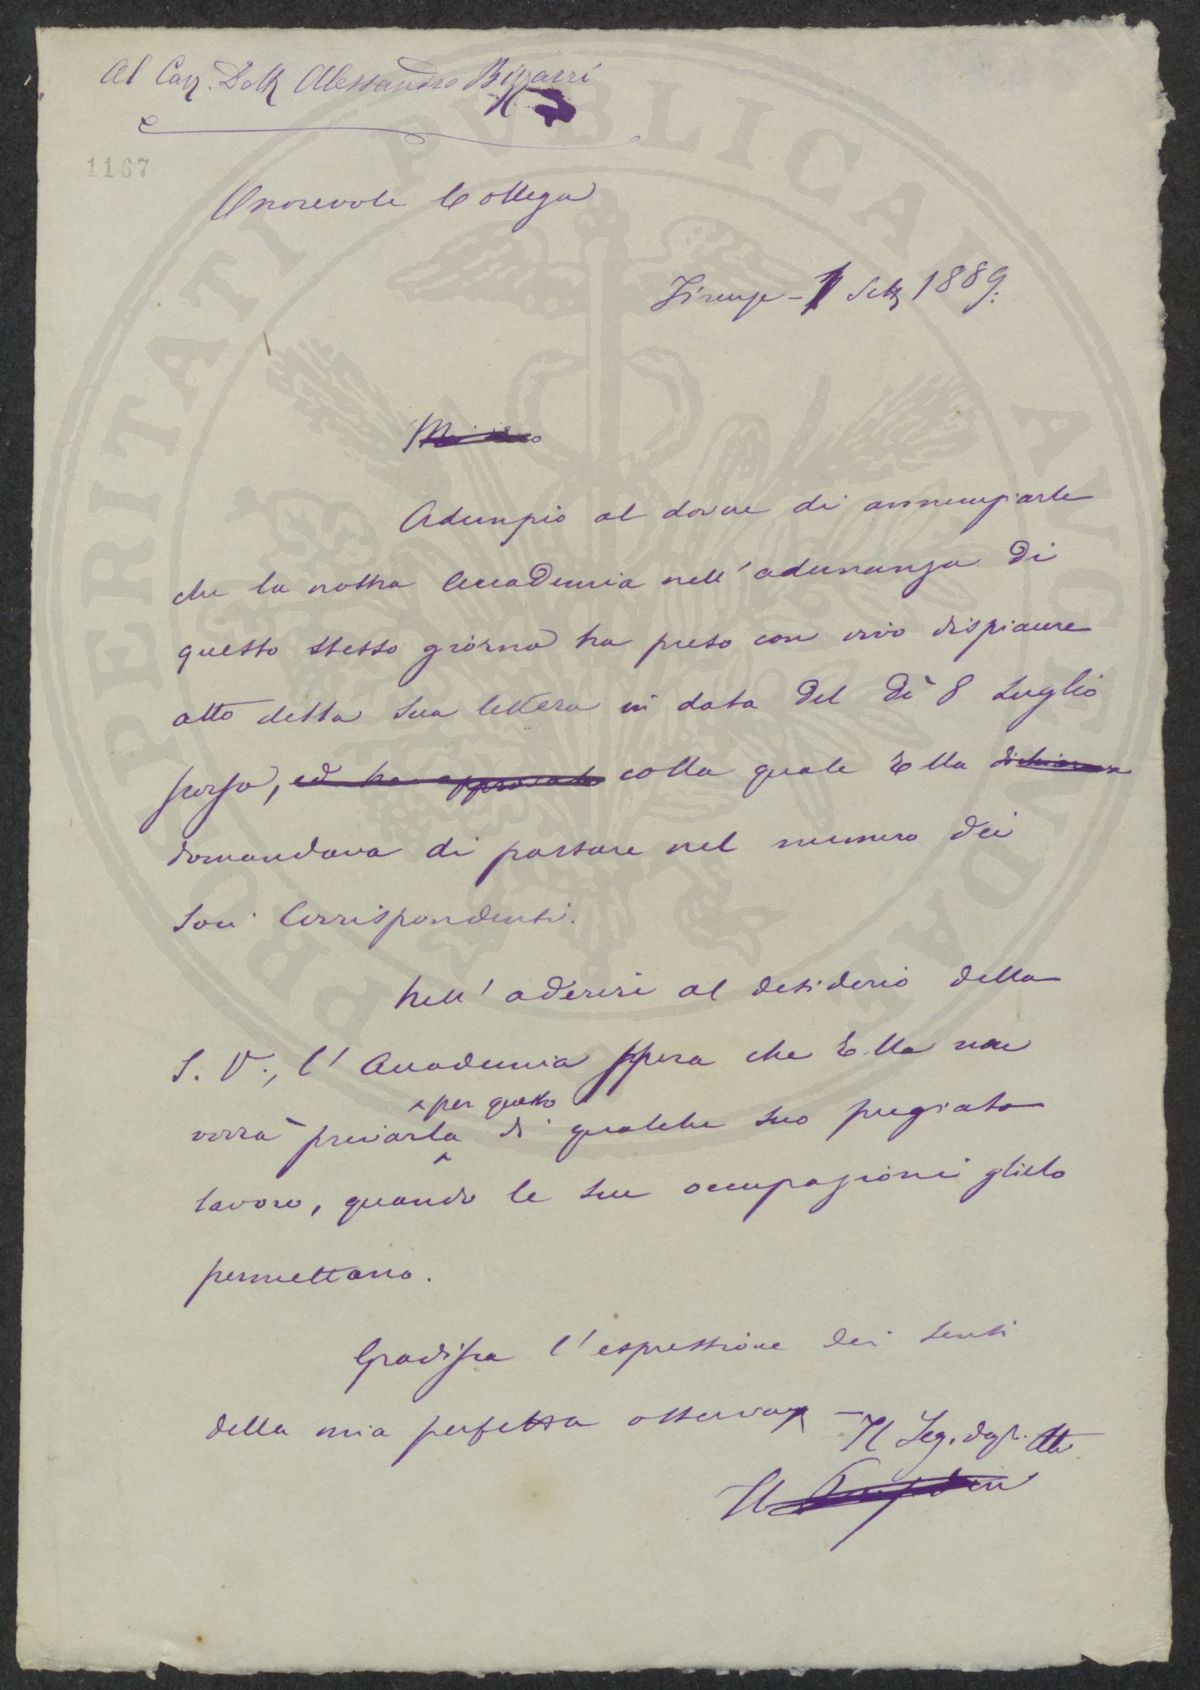 Al Cav. Dott Alessandro Bizzarri
1167
Onorevole Collega
Firenze - 1 Sett 1889.
Adempio al dovere di annunziarle
che la nostra Accademia nell'adunanza di
questo stesso giorno ha preso con vivo dispiacere
atto della sua lettera in data del dì 8 Luglio
scorso, ed ha approvato colla quale Ella dichiarava
domandava di passare nel numero dei
Soci Corrispondenti.
Nell'aderire al desiderio della
S. V., l'Accademia spera che Ella non
per questo
vorrà privarla di qualche suo pregiato
lavoro, quando le sue occupazioni glielo
permettano.
Gradisca l'espressione dei sensi
della mia perfetta osservanz - Il Seg. degli Atti
Il Presidente
PROSPERITATI PVBLICAE AVGENDAE